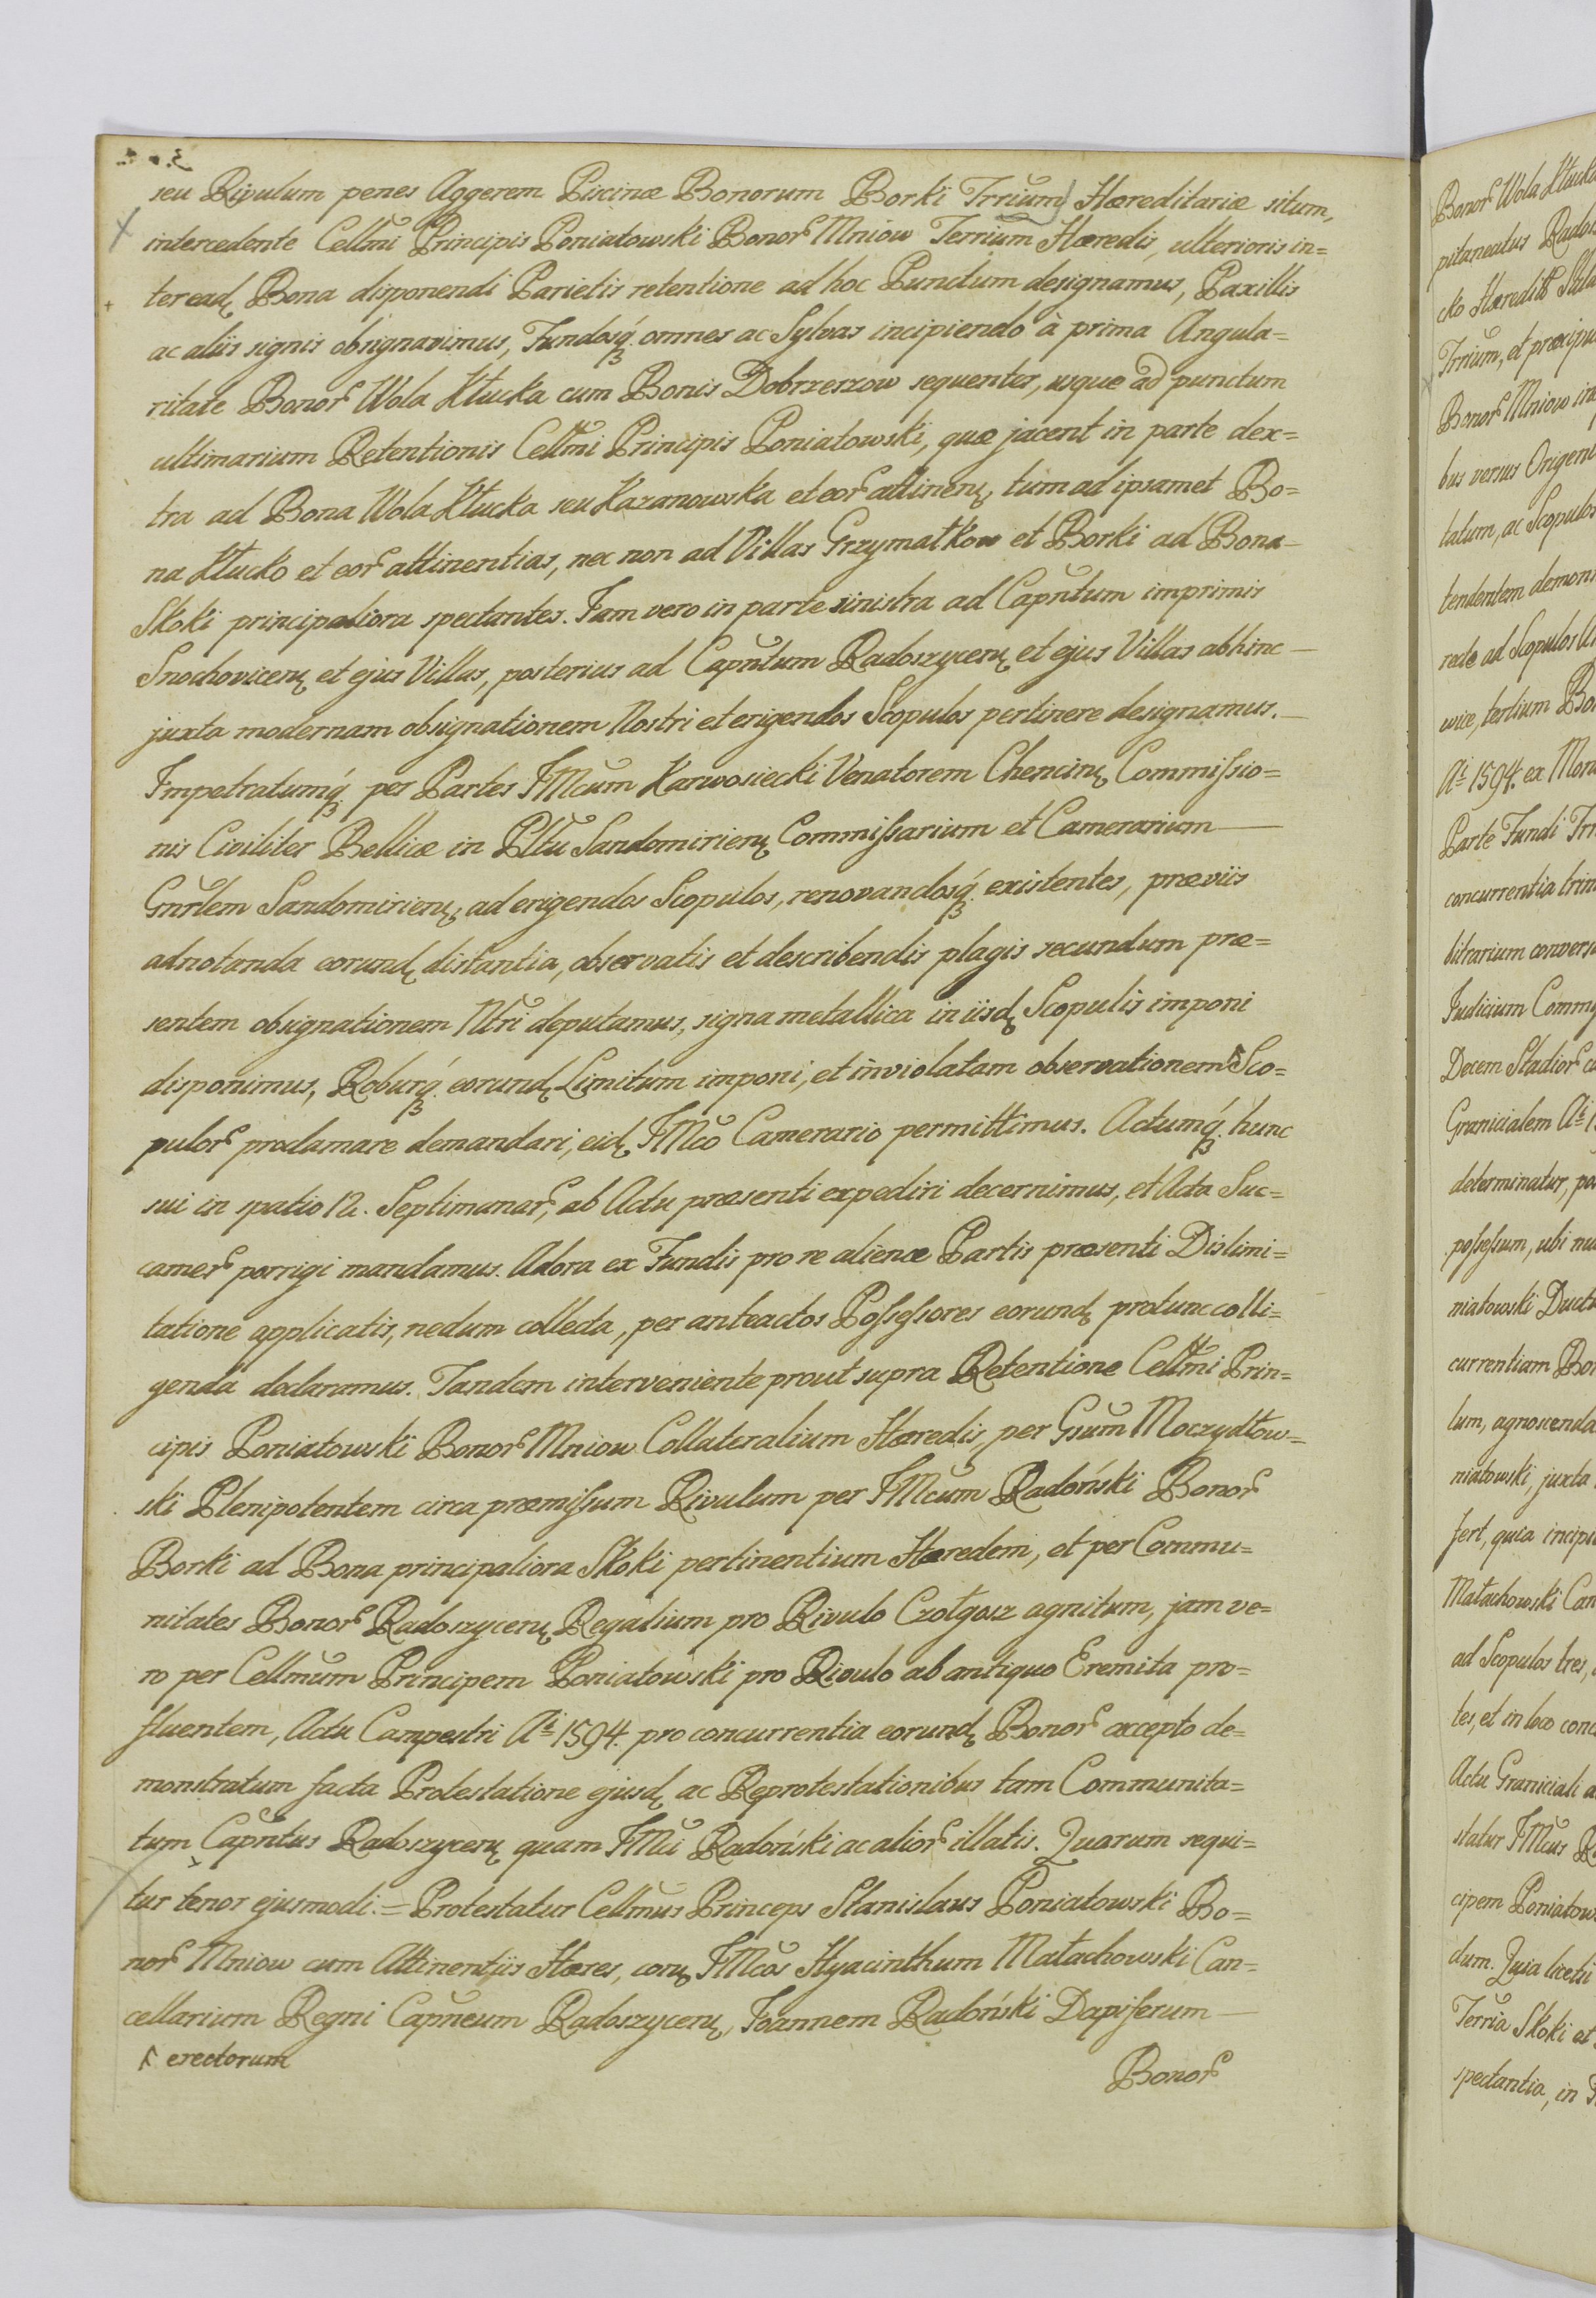 seu Rivulum penes Aggerem Piscinæ Bonorum Borki Trrium Hæreditariæ situm,
intercedente Cellmi Principis Poniatowski Bonor Mniow Terrium Hæredis, ulterioris in=
teread Bona disponendi Parietis retentione ad hoc Punctum designamus, Paxillis
ac aliis signis obsignavimus, Fundosq omnes ac Sylvas incipiendo à prima Angula=
ritate Bonor Wola Kłucka cum Bonis Dobrzeszow sequentes, usque ad punctum
ultimarium Retentionis Cellmi Principis Poniatowski, quæ jacent in parte dex=
tra ad Bona Wola Kłucka seu Kazanowska et eor attinen, tum ad ipsamet Bo=
na Kłucko et eor attinentias, nec non ad Villas Grzymałkow et Borki ad Bona
Skoki principaliora spectantes. Jam vero in parte sinistra ad Capntum imprimis
Snochovicen et ejus Villas, posterius ad Capntum Radoszycen et ejus Villas abhinc
juxta modernam obsignationem Nostri et erigendos Scopulos pertinere designamus.
Impetratumq per Partes JMcum Karwosiecki Venatorem Chencin Commissio=
nis Civiliter Bellicæ in Pltu Sandomirien Commissarium et Camerarium
Gnrlem Sandomirien, ad erigendos Scopulos, renovandosq existentes, præviis
adnotanda eorund distantia, observatis et describendis plagis secundum præ=
sentem obsignationem Ntri deputamus, signa metallica in iisd Scopulis imponi
disponimus, Roburq eorund Limitum imponi, et inviolatam observationem Sco=
pulor proclamare demandari, eid JMco Camerario permittimus. Actumq hunc
sui in spatio 12. Septimanar, ab Actu præsenti expediri decernimus, et Acta Suc=
camer porrigi mandamus. Adora ex Fundis pro re alienæ Partis præsenti Dislimi=
tatione applicatis, nedum collecta, per anteactos Possessores eorund protunc colli=
genda declaramus. Tandem interveniente prout supra Retentione Cellmi Prin=
cipis Poniatowski Bonor Mniow Collateralium Hæredis, per Gsum Moczydłow=
ski Plenipotentem circa præmissum Rivulum per JMcum Radoński Bonor
Borki ad Bona principaliora Skoki pertinentium Hæredem, et per Commu=
nitates Bonor Radoszycen Regalium pro Rivulo Czołgosz agnitum, jam ve=
ro per Cellmum Principem Poniatowski pro Rivulo ab antiquo Eremita pro=
fluentem, Actu Campestri Ai 1594. pro concurrentia eorund Bonor accepto de=
monstratum facta Protestatione ejusd ac Reprotestationibus tam Communita=
tum Capntus Radoszycen quam JMci Radoński ac alior illatis. Quarum sequi=
tur tenor ejusmodi.= Protestatur Cellmus Princeps Stanislaus Poniatowski Bo=
nor Mniow cum Attinentiis Hæres, con JMcos Hyacinthum Małachowski Can=
cellarium Regni Capneum Radoszycen, Joannem Radoński Dapiferum
erectorum
Bonor
Bonor Wola Kłucka
pitaneatus Rados
Trrium, et præcipu
Bonor Mniow
bus versus Origen
tatum, ac Scopulos
tendentem demon
recte ad Scopulos
wice, tertium Bo
Ai 1594. ex Mon
Parte Fundi Trr
concurrentia
bitrarium convers
Judicium Comm
Decem Stadior
Granicialem Ai
determinatur,
possessum, ubi
niatowski Ductu
currentiam Bon
lum, agnoscenda
niatowski, juxta
fert, quia incipi
Małachowski Can
ad Scopulos tres,
tes, et in loco conc
Actu Graniciali
statur JMcus
cipem Poniatow
dum. Quia licet
Terria Skoki et
spectantia, in